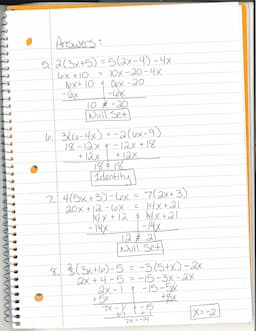 Answers:
5. 2(3x+5) = 5(2x-4) - 4x
6x+10 = 10x-20-4x
6x+10 ≠ 6x-20
-6x -6x
10 ≠ -20
Null Set
6. 3(6-4x) = -2(6x-9)
18-12x = -12x+18
+12x +12x
18 = 18
Identity
7. 4(5x+3)-6x = 7(2x+3)
20x+12-6x = 14x+21
14x+12 ≠ 14x+21
-14x -14x
12 ≠ 21
Null Set
8. (3x+6)-5 = -3(5+x)-2x
2x+4-5 = -15-3x-2x
2x-1 = -15-5x
+5x +5x
7x-1 = -15
+1 +1
7x=-14
x=-2